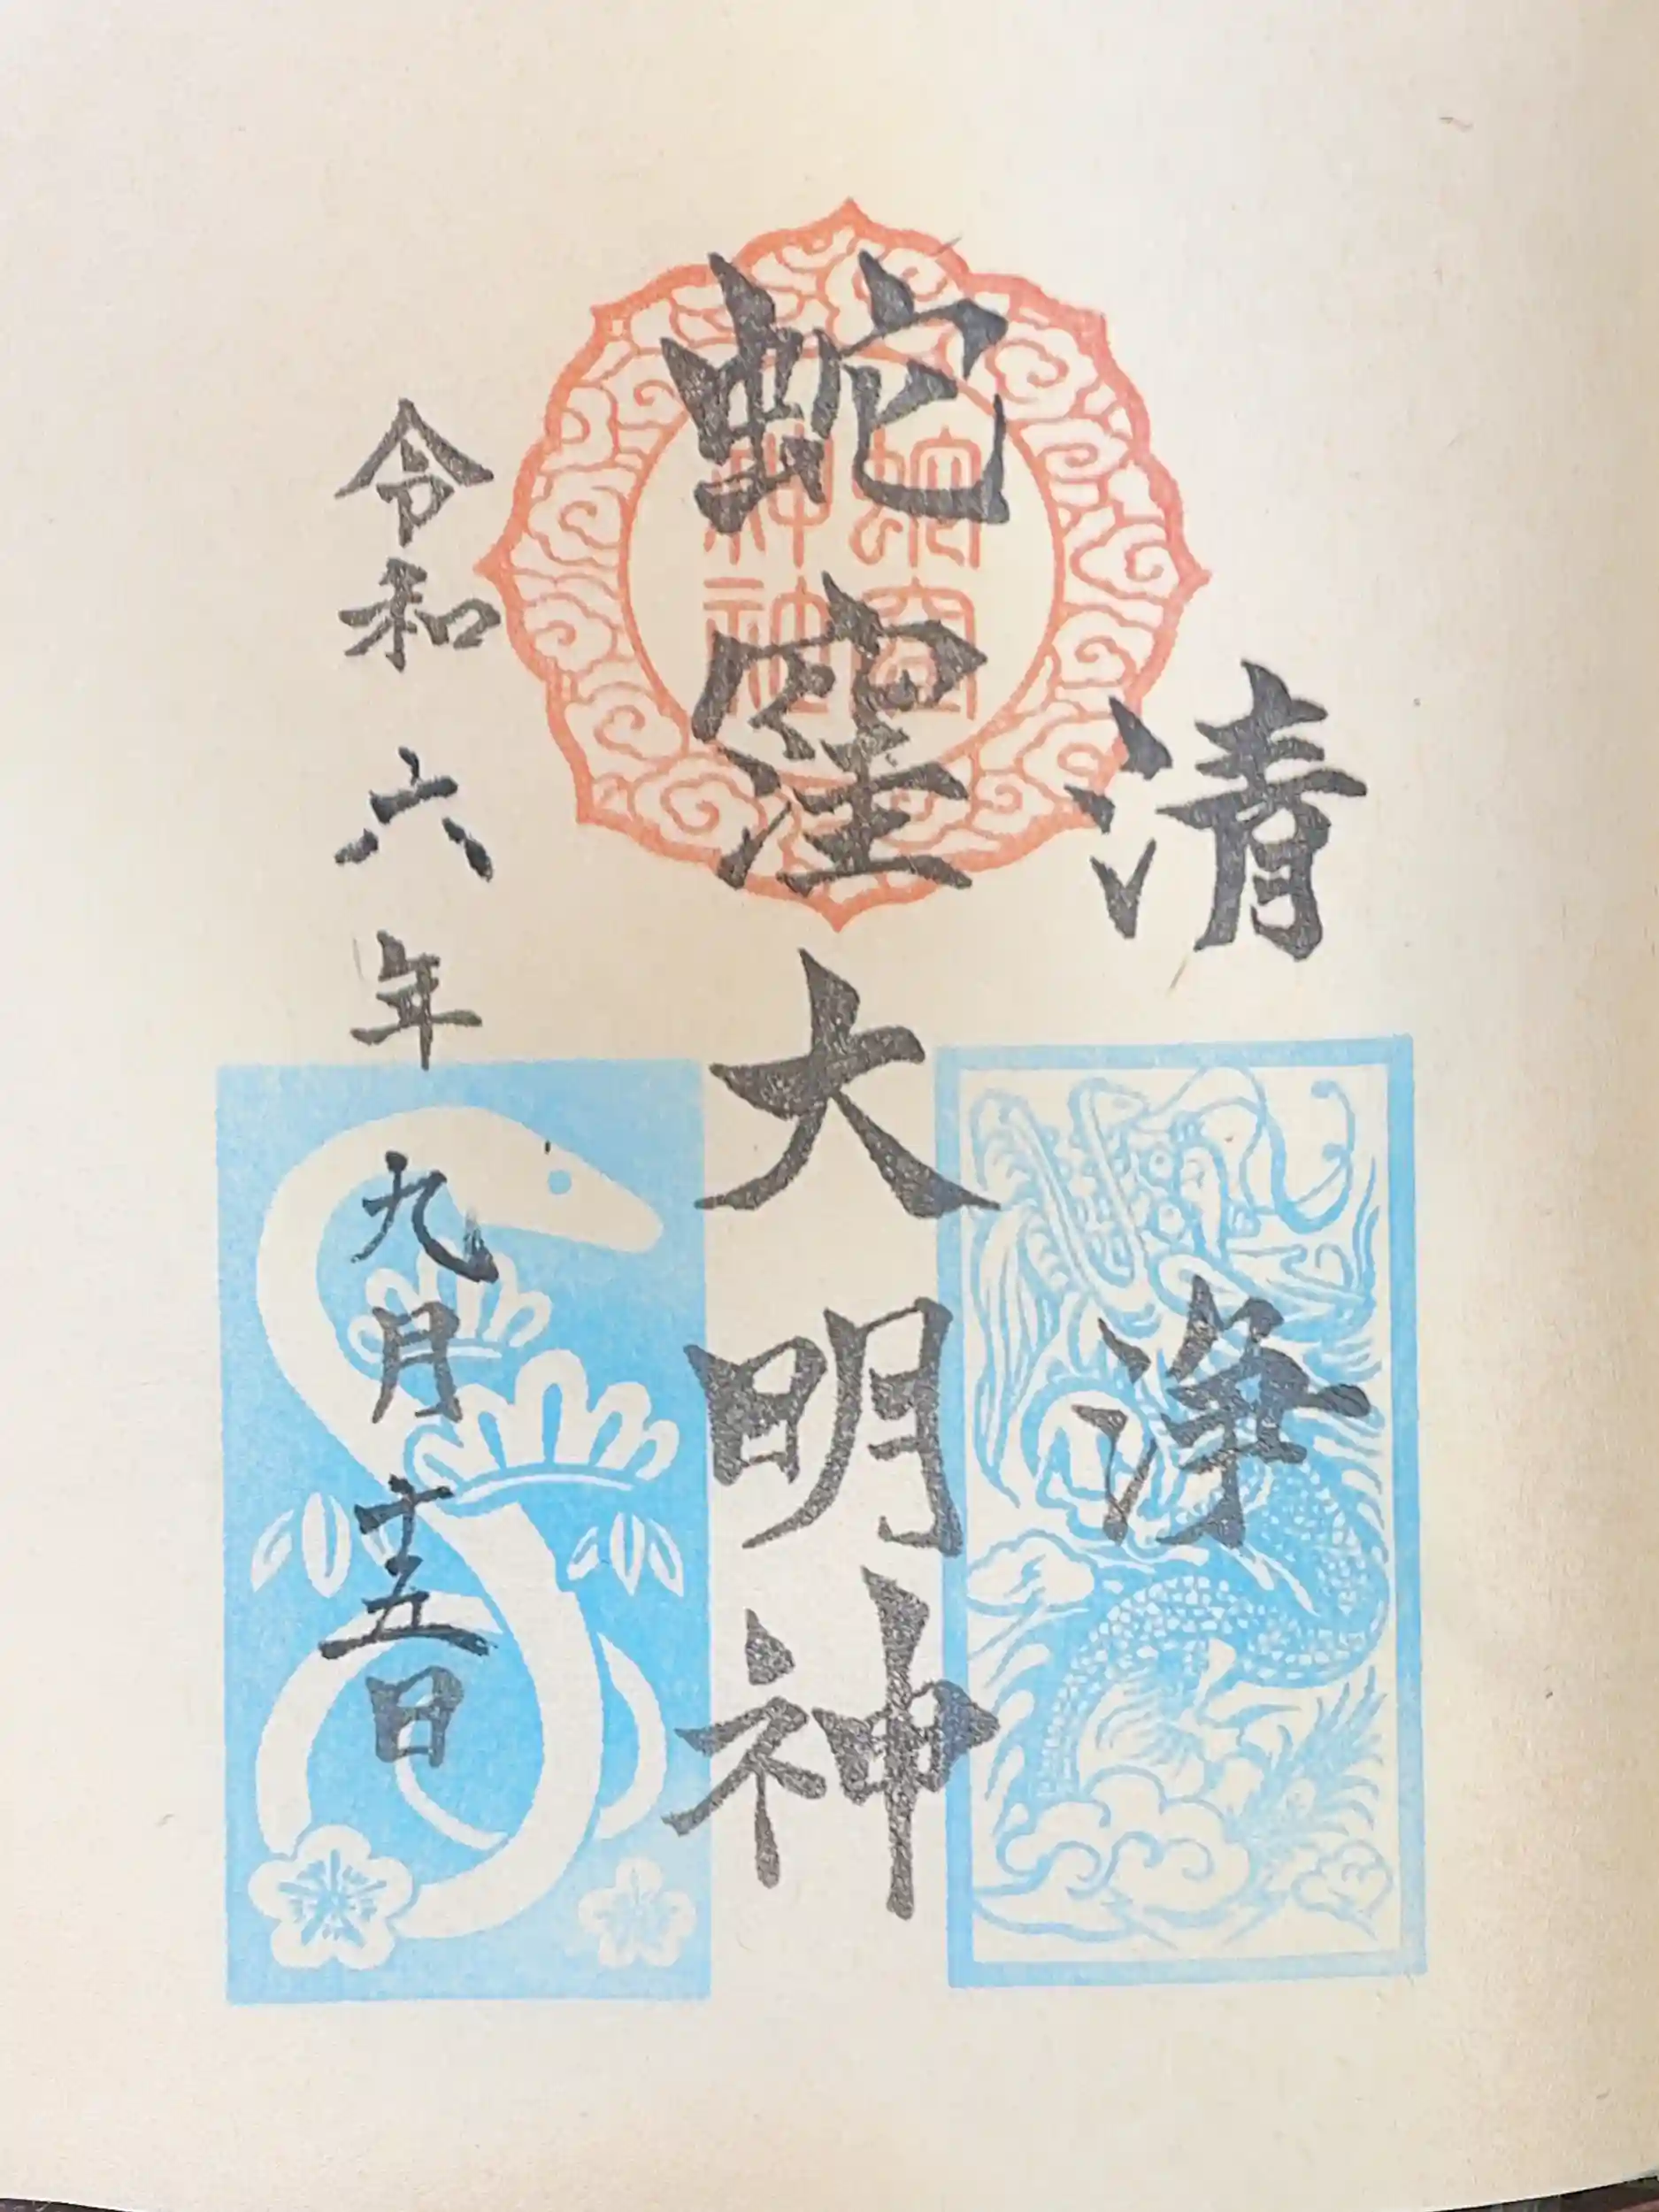 清浄
蛇窪大明神
令和六年九月十五日
蛇窪
神社